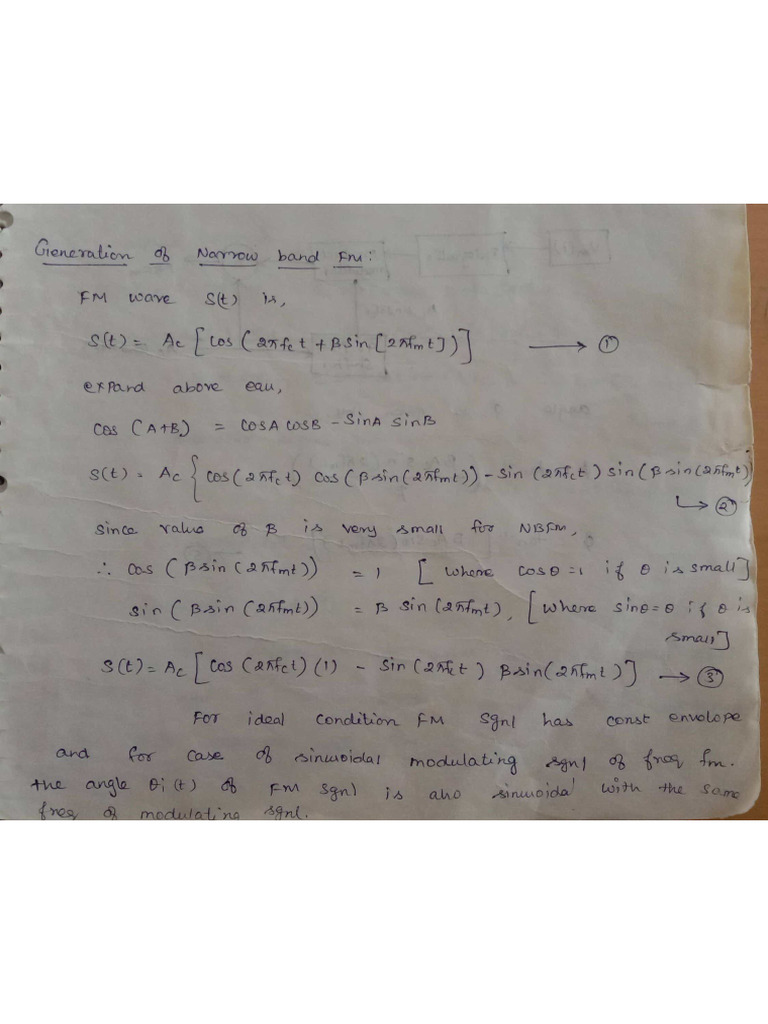 Generation of Narrow band FM:
FM wave S(t) is,
S(t) = Ac [cos(2πfct + βsin[2πfmt])] → ①
expand above equ,
cos (A+B) = cosA cosB - sinA sinB
S(t) = Ac { cos(2πfct) cos(βsin(2πfmt)) - sin(2πfct) sin(βsin(2πfmt)
↳ ②
Since value of β is very small for NBFM,
∴ cos (βsin(2πfmt)) = 1 [where cosθ=1 if θ is small]
sin (βsin(2πfmt)) = β sin(2πfmt), [where sinθ=θ if θ is
small]
S(t) = Ac [cos(2πfct)(1) - sin(2πfct) βsin(2πfmt)] → ③
For ideal condition FM sgnl has const envelope
and for case of sinusoidal modulating sgnl of freq fm.
the angle θi(t) of FM sgnl is also sinusoidal with the same
freq of modulating sgnl.